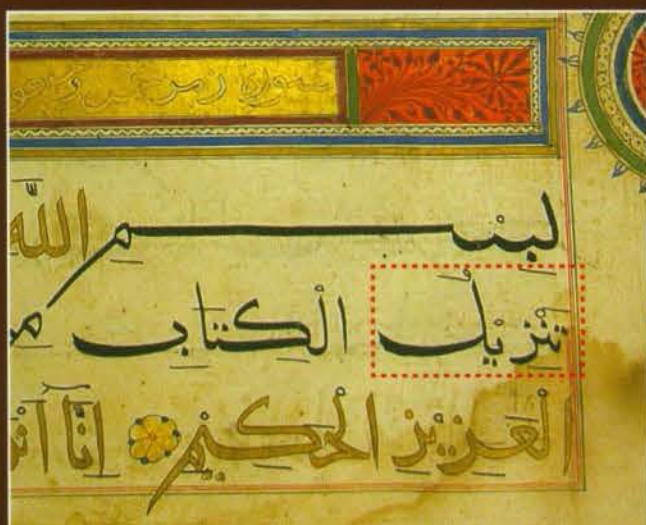 سورة الزمر
بسم الله
تَنْزِيلُ الْكِتَابِ مـ
الْعَزِيزِ الْحَكِيمِ إِنَّا أَنْز